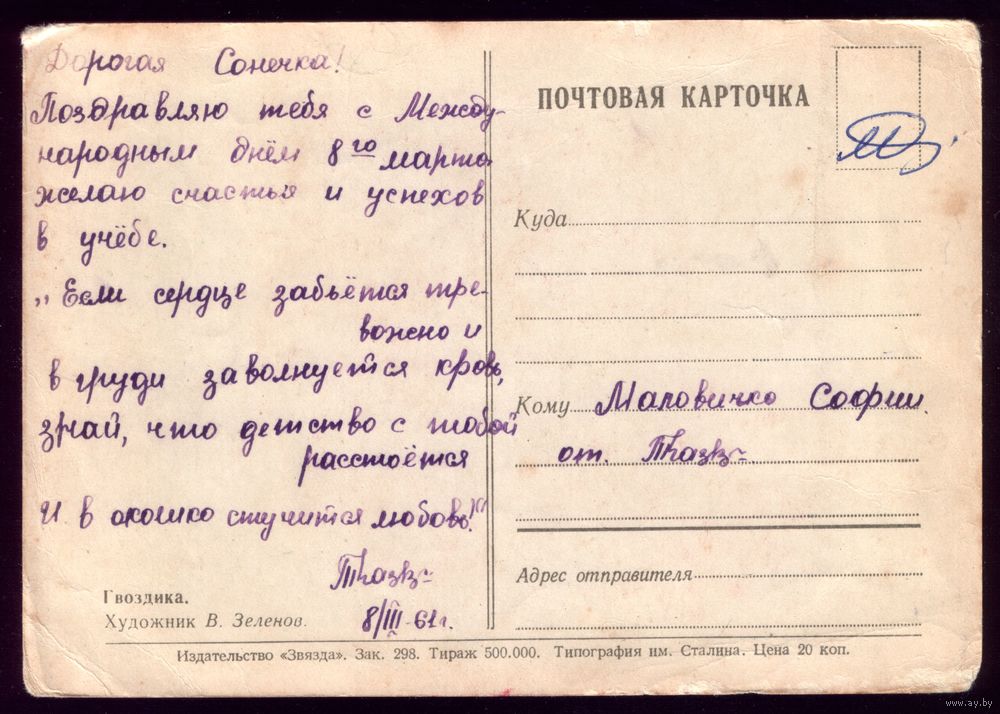 Дорогая Сонечка!
Поздравляю тебя с Между-
народным днём 8го марта
желаю счастья и успехов
в учёбе.
„Если сердце забьётся тре-
вожно и
в груди заволнуется кровь,
знай, что детство с тобой
расстоётся
И в окошко стучится любовь!"
8/III-61 г.
Гвоздика.
Художник В. Зеленов.
ПОЧТОВАЯ КАРТОЧКА
Куда
Кому Маловичко Софии.
от.
Адрес отправителя
Издательство «Звязда». Зак. 298. Тираж 500.000. Типография им. Сталина. Цена 20 коп.
www.ay.by